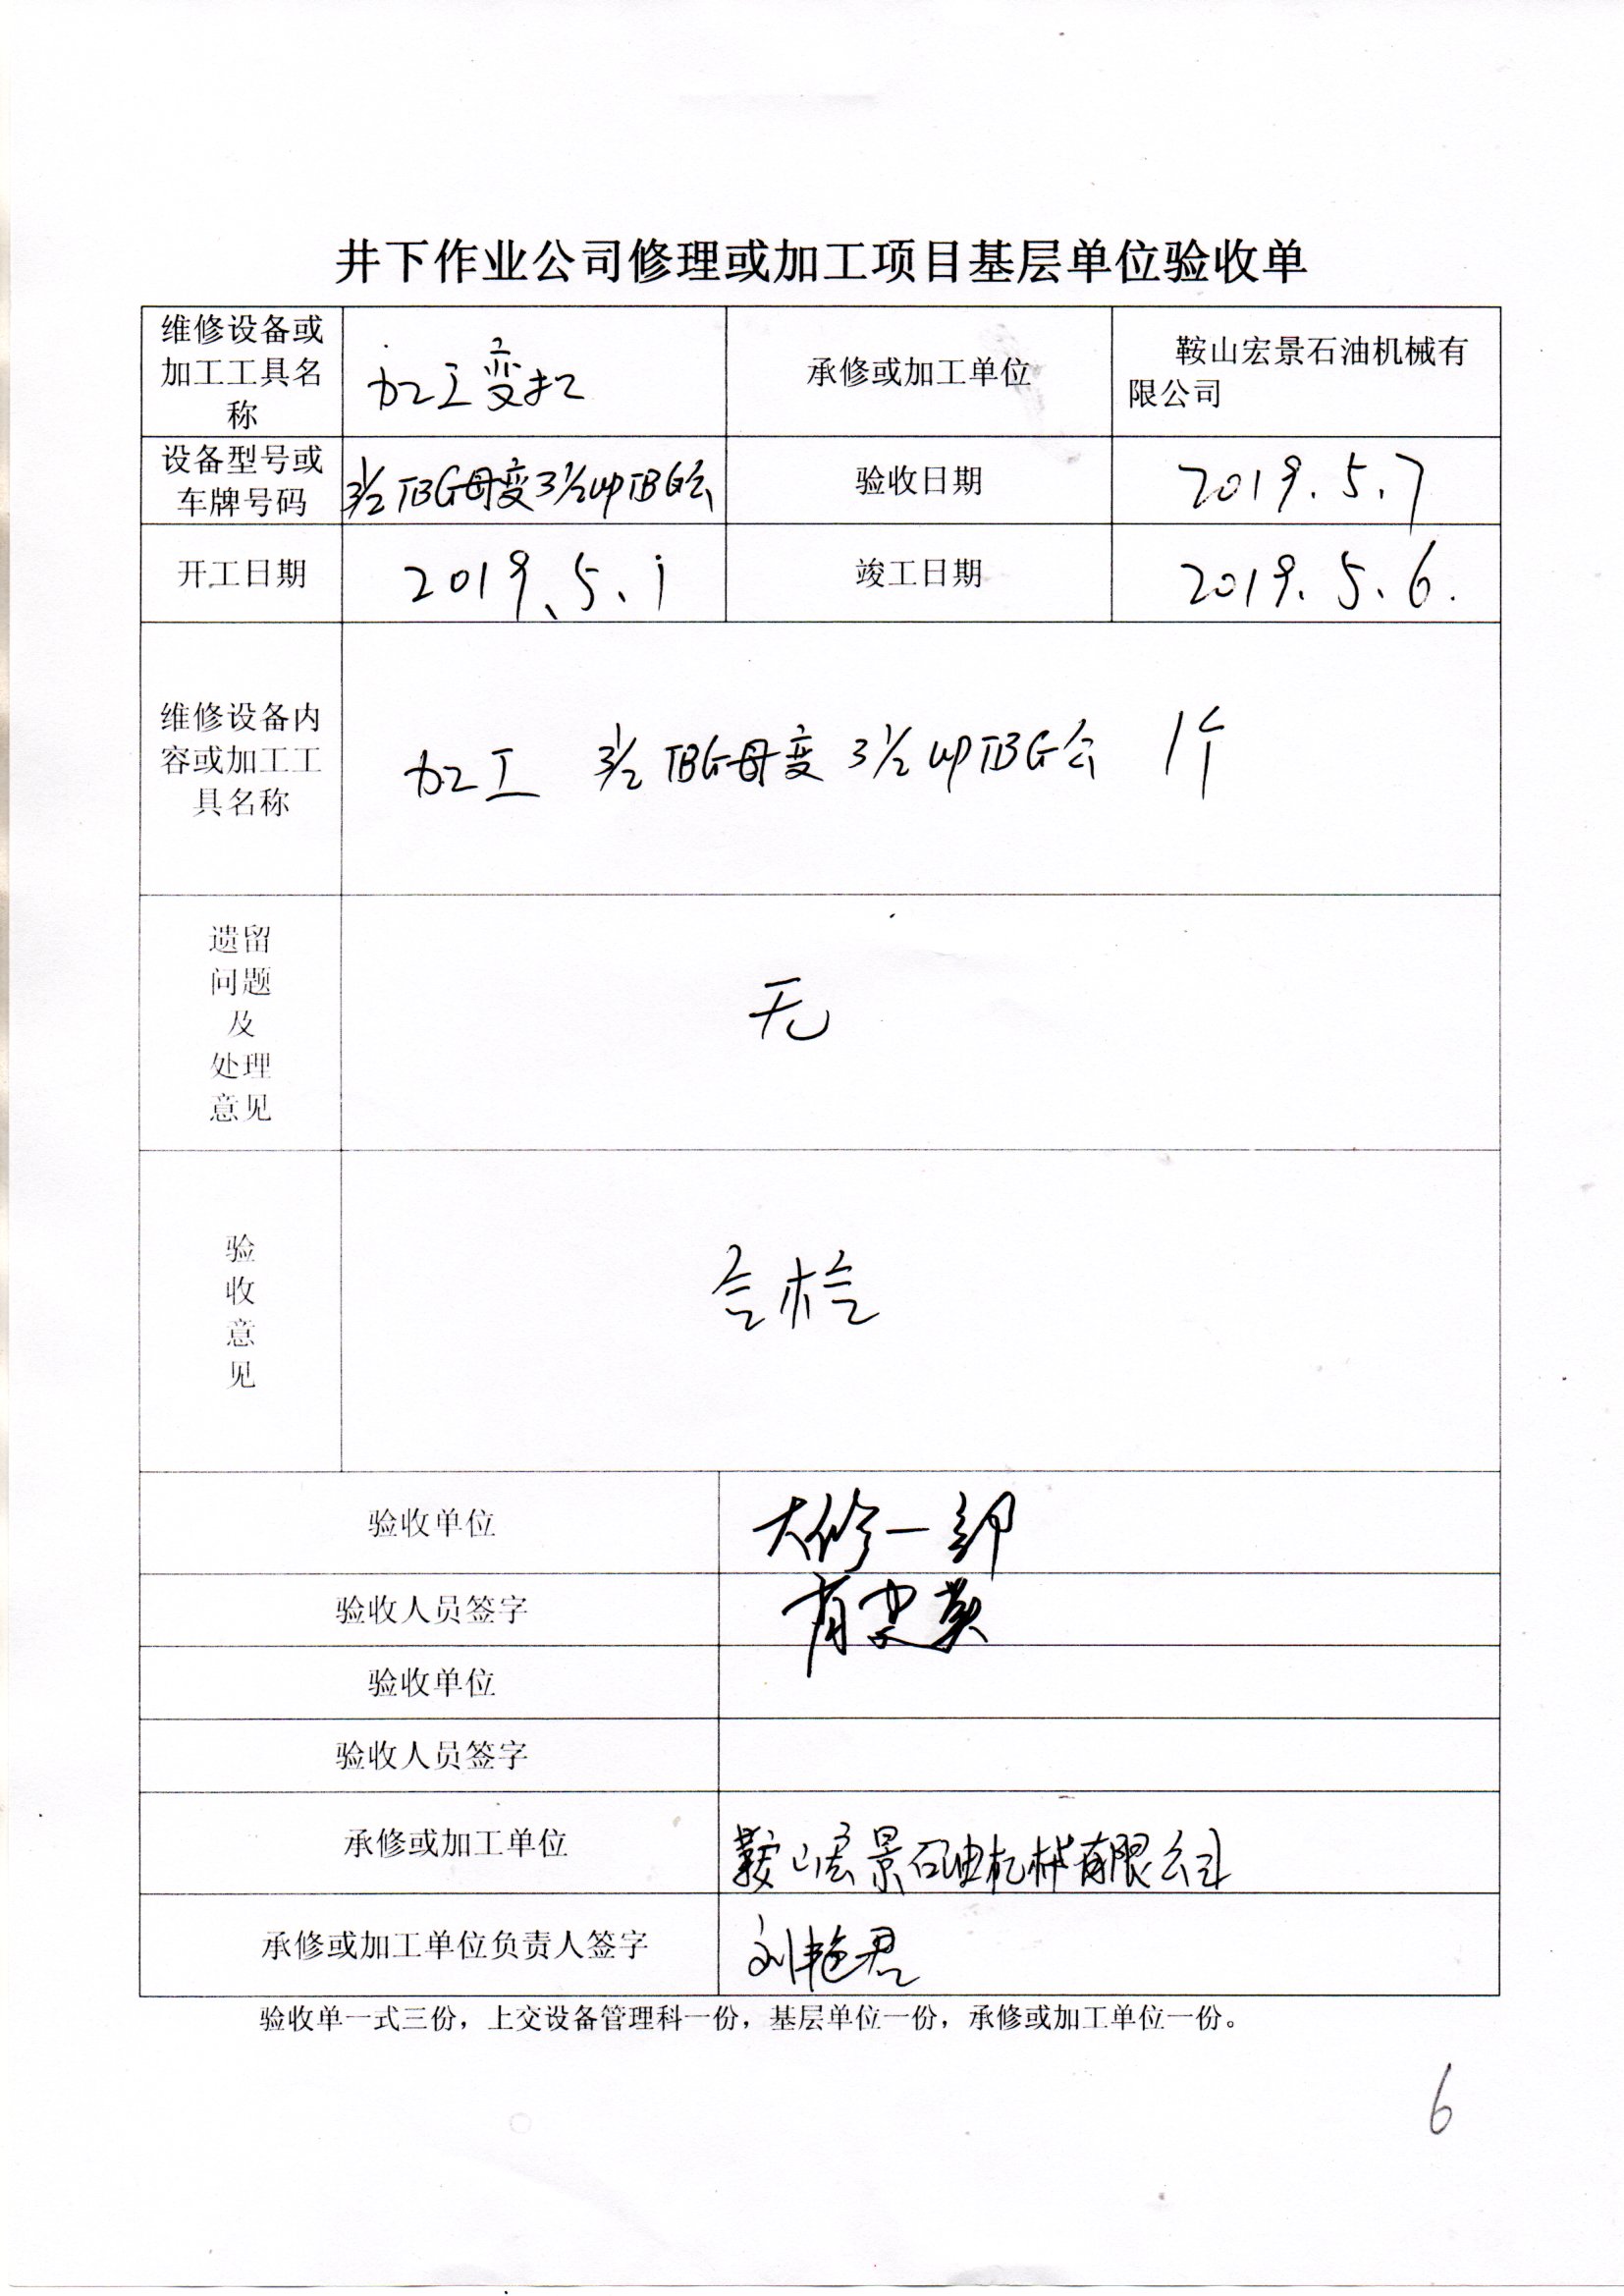 井下作业公司修理或加工项目基层单位验收单
维修设备或
加工工具名
称
加工变扣
承修或加工单位
鞍山宏景石油机械有
限公司
设备型号或
车牌号码
3½TBG母变3½upTBG公
验收日期
2019.5.7
开工日期
2019.5.1
竣工日期
2019.5.6.
维修设备内
容或加工工
具名称
加工 3½TBG母变3½upTBG公 1个
遗留
问题
及
处理
意见
无
验
收
意
见
合格
验收单位
大修一部
验收人员签字
验收单位
验收人员签字
承修或加工单位
鞍山宏景石油机械有限公司
承修或加工单位负责人签字
刘艳君
验收单一式三份，上交设备管理科一份，基层单位一份，承修或加工单位一份。
6